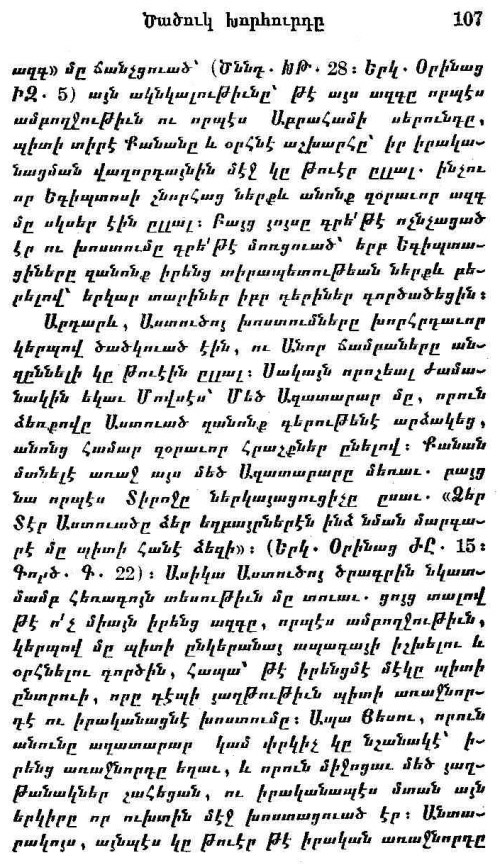 Ծածուկ Խորհուրդը 107
ազգ» մը ճանչցուած՝ (Ծննդ. ԽԹ. 28: Երկ. Օրինաց
ԻԶ. 5) այն ակնկալութիւնը՝ թէ այս ազգը որպէս
ամբողջութիւն ու որպէս Աբրահամի սերունդը,
պիտի տիրէ Քանանը և օրհնէ աշխարհը՝ իր իրակա-
նացման վաղորդայնին մէջ կը թուէր ըլլալ. ինչու
որ Եգիպտոսի շնորհաց ներքև անոնք զօրաւոր ազգ
մը սկսեր էին ըլլալ: Բայց յոյսը գրե՛թէ ոչնչացած
էր ու խոստումը գրե՛թէ մոռցուած՝ երբ Եգիպտա-
ցիները զանոնք իրենց տիրապետութեան ներքև բե-
րելով՝ երկար տարիներ իբր գերիներ գործածեցին:
Արդարև, Աստուծոյ խոստումները խորհրդաւոր
կերպով ծածկուած էին, ու Անոր ճամբաները ան-
զըննելի կը թուէին ըլլալ: Սակայն որոշեալ ժամա-
նակին եկաւ Մովսէս՝ Մեծ Ազատարար մը, որուն
ձեռքովը Աստուած զանոնք գերութենէ արձակեց,
անոնց համար զօրաւոր հրաշքներ ընելով: Քանան
մտնելէ առաջ այս մեծ Ազատարարը մեռաւ. բայց
նա որպէս Տիրոջը ներկայացուցիչը ըսաւ. «Ձեր
Տէր Աստուածը ձեր եղբայրներէն ինձ նման մարգա-
րէ մը պիտի հանէ ձեզի»: (Երկ. Օրինաց ԺԸ. 15:
Գործ. Գ. 22): Ասիկա Աստուծոյ ծրագրին նկատ-
մամբ հեռագոյն տեսութիւն մը տուաւ. ցոյց տալով
թէ ո՛չ միայն իրենց ազգը, որպէս ամբողջութիւն,
կերպով մը պիտի ընկերանայ ապագայի իշխելու և
օրհնելու գործին, հապա՝ թէ իրենցմէ մէկը պիտի
ընտրուի, որը դէպի յաղթութիւն պիտի առաջնոր-
դէ ու իրականացնէ խոստումը: Ապա Յեսու, որուն
անունը ազատարար կամ փրկիչ կը նշանակէ՝ ի-
րենց առաջնորդը եղաւ, և որուն միջոցաւ մեծ յաղ-
թանակներ շահեցան, ու իրականապէս մտան այն
երկիրը որ ուխտին մէջ խոստացուած էր: Անտա-
րակոյս, այնպէս կը թուէր թէ իրական առաջնորդը